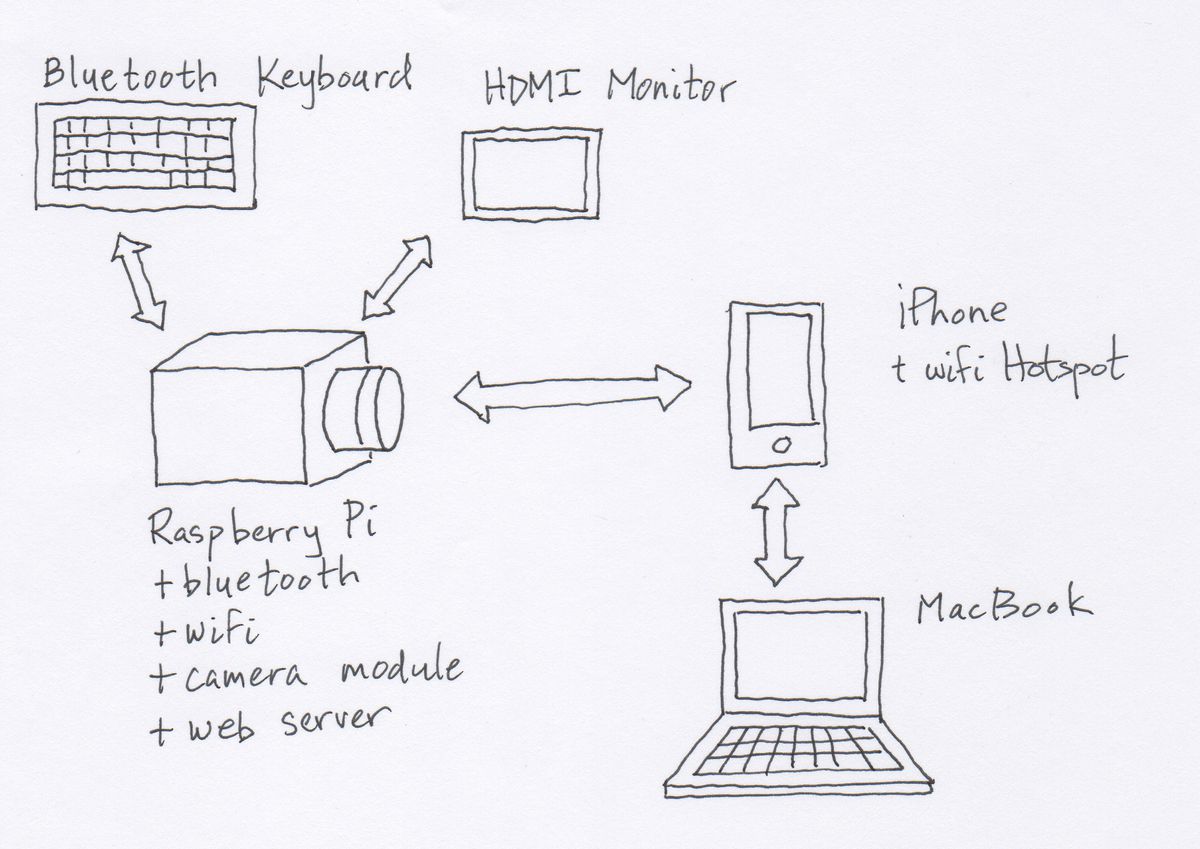 Bluetooth Keyboard
HDMI Monitor
iPhone
+ wifi Hotspot
Raspberry Pi
+ bluetooth
+ wifi
+ camera module
+ web server
MacBook